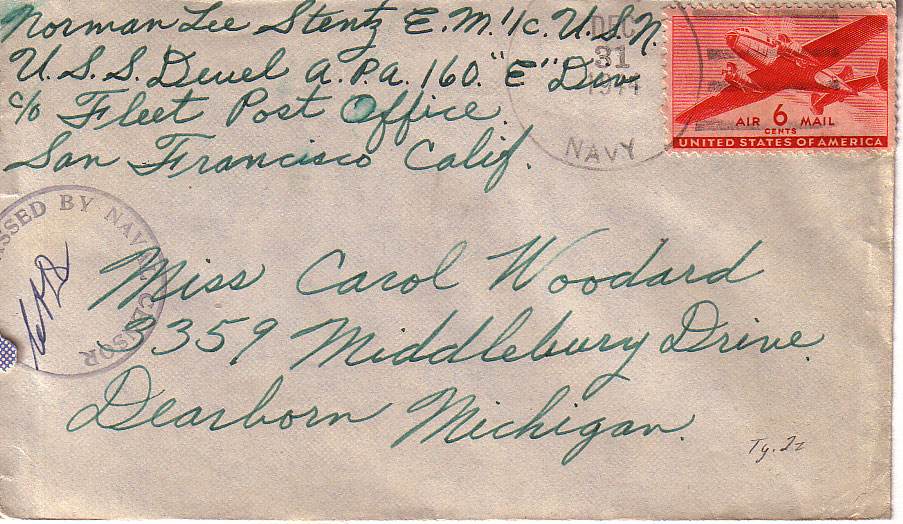 Norman Lee Stentz E.M. 1/c. U.S.N.
U.S.S. Deuel A.P.A. 160. "E" Div.
c/o Fleet Post Office.
San Francisco Calif.
DEC
31
1944
NAVY
AIR 6 MAIL
CENTS
UNITED STATES OF AMERICA
PASSED BY NAVAL CENSOR
Miss Carol Woodard
3359 Middlebury Drive.
Dearborn Michigan.